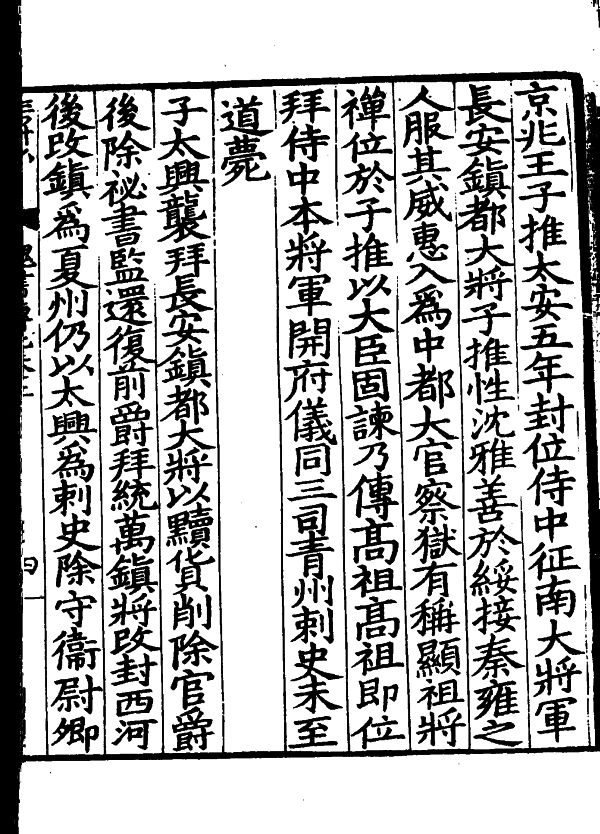 京兆王子推太安五年封位侍中征南大將軍
長安鎮都大將子推性沈雅善於綏接秦雍之
人服其威惠入爲中都大官察獄有稱顯祖將
禪位於子推以大臣固諫乃傳髙祖髙祖即位
拜侍中本將軍開府儀同三司青州刺史未至
道薨
子太興襲拜長安鎮都大將以黷貨削除官爵
後除祕書監還復前爵拜統萬鎮將改封西河
後改鎮爲夏州仍以太興爲刺史除守衞尉卿